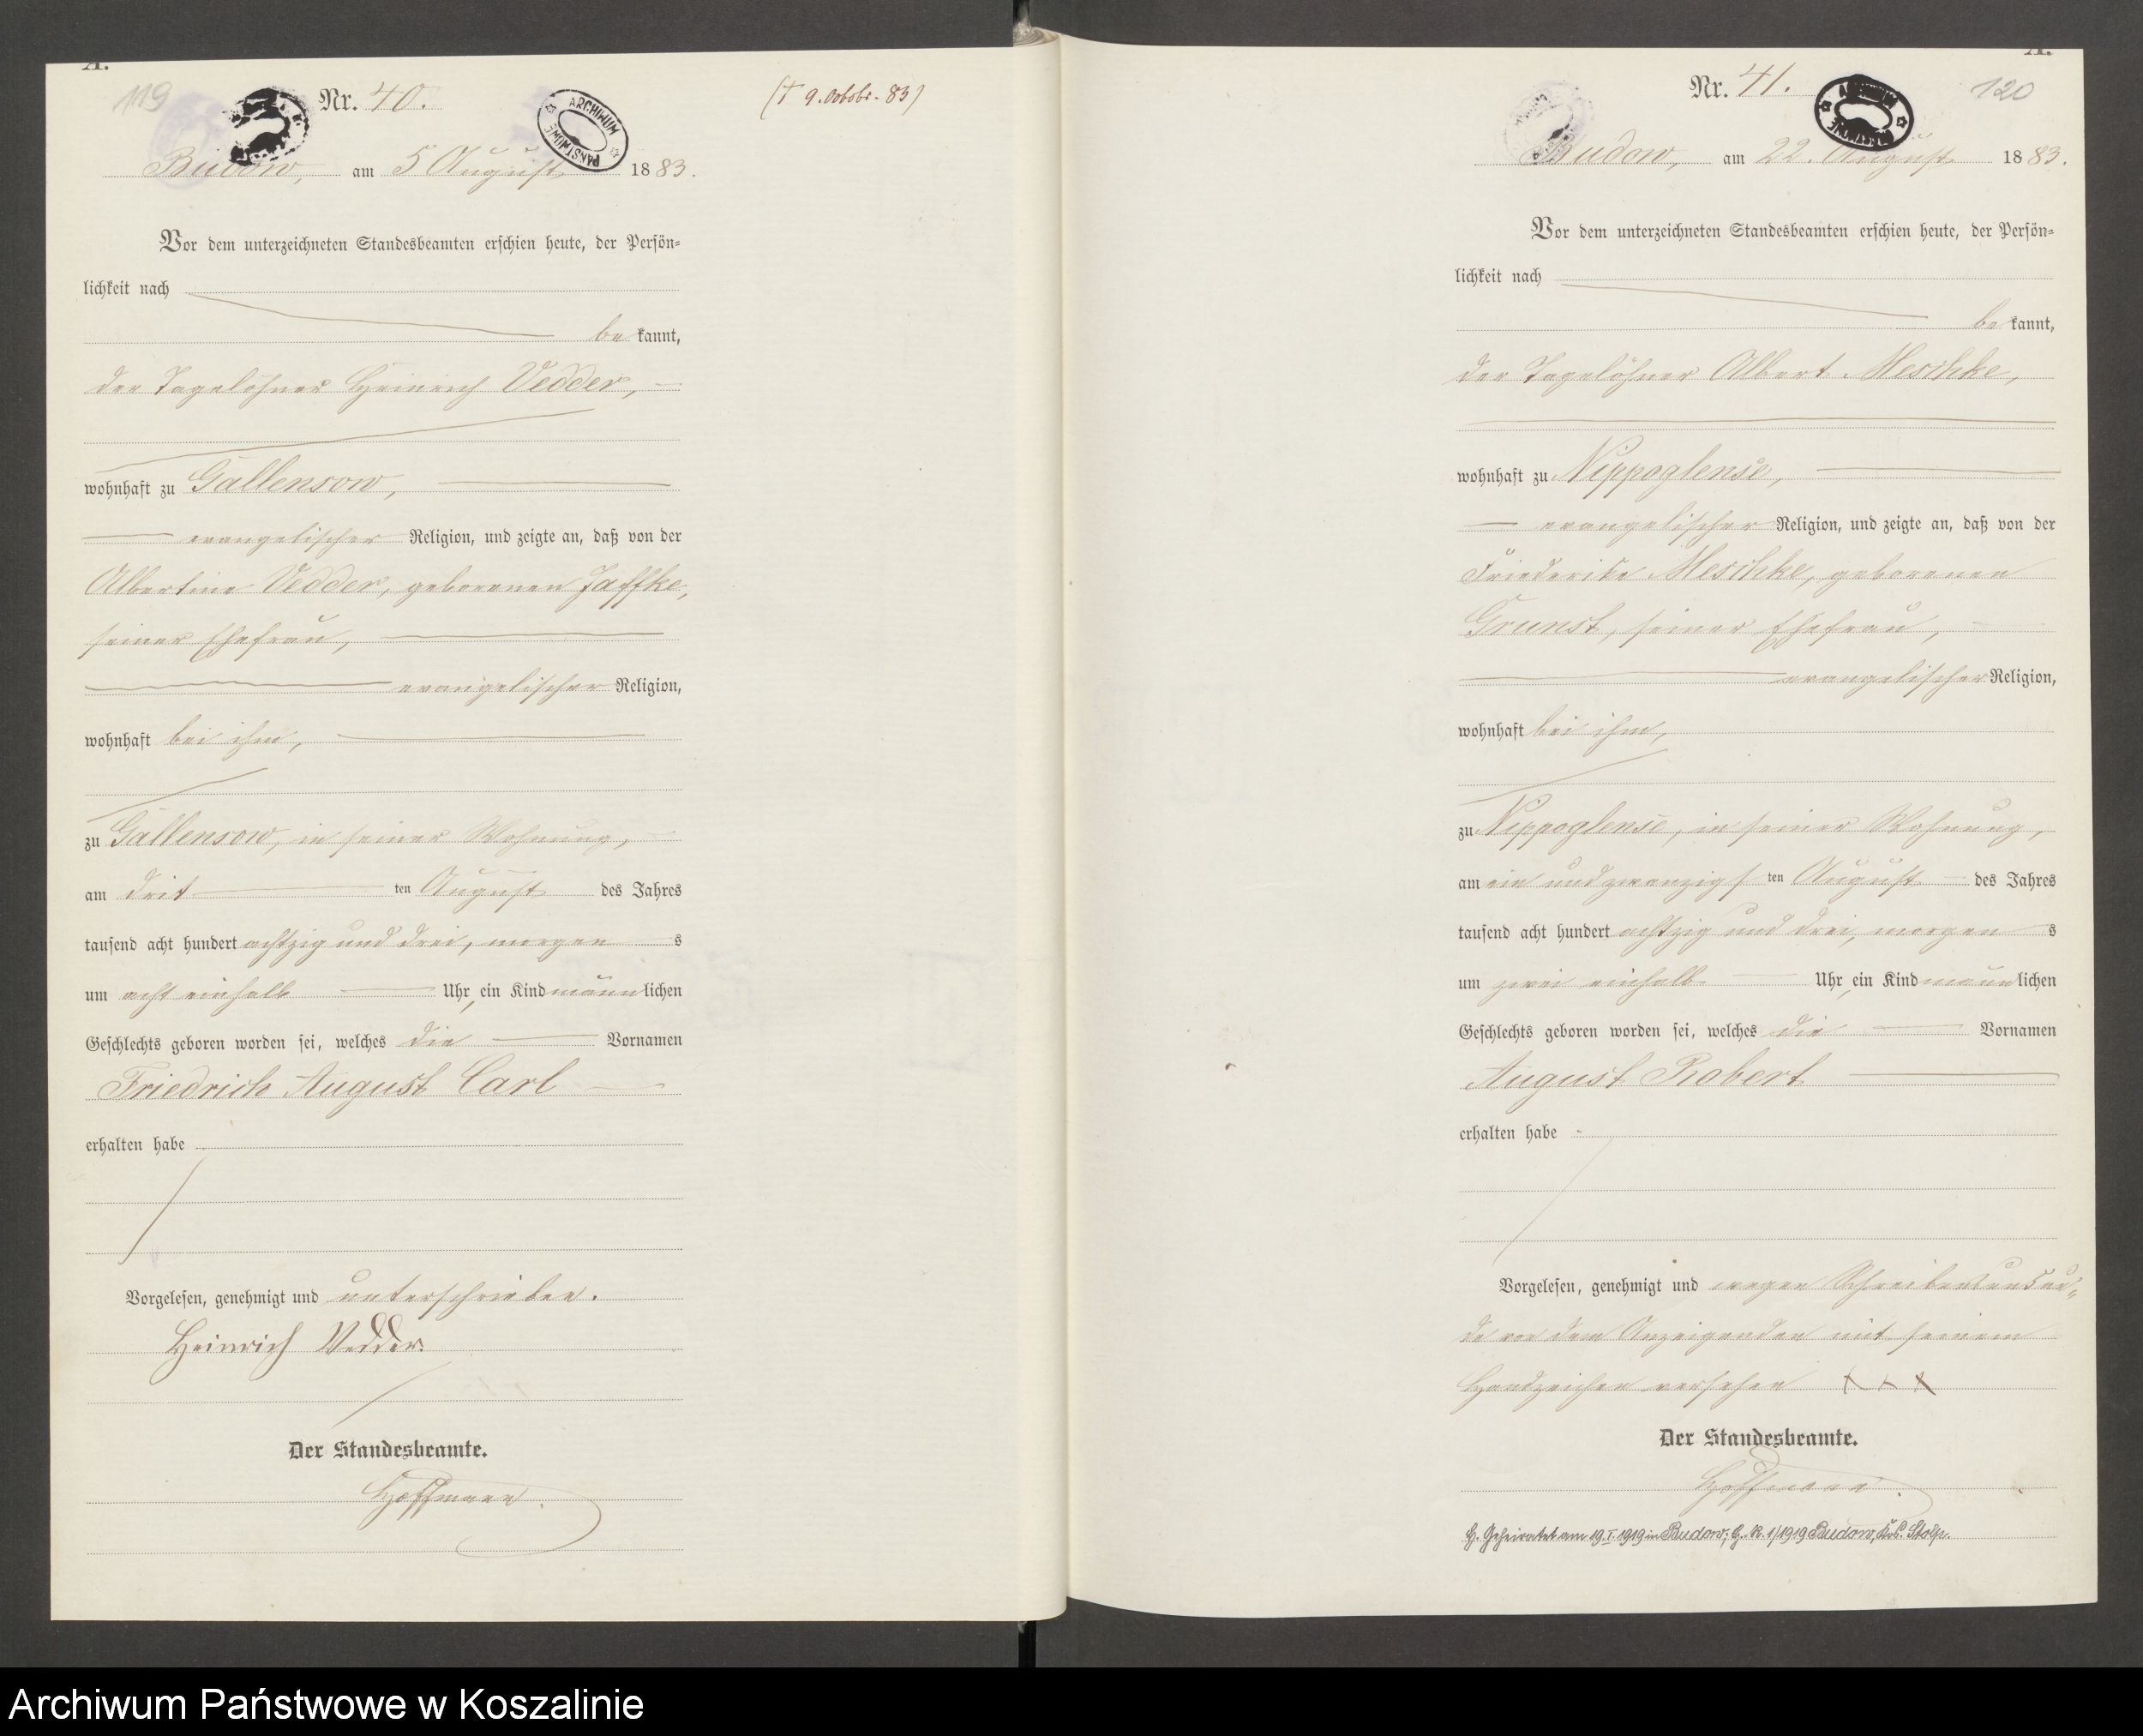 A.
119
Nr. 40.
(† 9. Octobr. 83)
ARCHIWUM PAŃSTWOWE
Budow, am 5 August 1883.
Vor dem unterzeichneten Standesbeamten erschien heute, der Persön=
lichkeit nach
be kannt,
der Tagelöhner Heinrich Vedder,
wohnhaft zu Gallensow,
evangelischer Religion, und zeigte an, daß von der
Albertine Vedder, geborenen Jaffke,
seiner Ehefrau,
evangelischer Religion,
wohnhaft bei ihm,
zu Gallensow, in seiner Wohnung,
am drit ten August des Jahres
tausend acht hundert achtzig und drei, morgen s
um acht einhalb Uhr, ein Kind männlichen
Geschlechts geboren worden sei, welches die Vornamen
Friedrich August Carl
erhalten habe
Vorgelesen, genehmigt und unterschrieben.
Heinrich Vedder.
Der Standesbeamte.
Hoffmann.
A.
Nr. 41.
120
Budow, am 22. August 1883.
Vor dem unterzeichneten Standesbeamten erschien heute, der Persön=
lichkeit nach
be kannt,
der Tagelöhner Albert Meschke,
wohnhaft zu Nippoglense,
evangelischer Religion, und zeigte an, daß von der
Friederike Meschke, geborenen
Grunst, seiner Ehefrau,
evangelischer Religion,
wohnhaft bei ihm,
zu Nippoglense, in seiner Wohnung,
am ein und zwanzigs ten August des Jahres
tausend acht hundert achtzig und drei, morgen s
um zwei einhalb Uhr, ein Kind männlichen
Geschlechts geboren worden sei, welches die Vornamen
August Robert
erhalten habe
Vorgelesen, genehmigt und wegen Schreibensunkun=
de von dem Anzeigenden mit seinem
Handzeichen versehen XXX
Der Standesbeamte.
Hoffmann.
H. Geheiratet am 19.I.1919 in Budow, H. R. 1/1919 Budow, Krs. Stolp.
Archiwum Państwowe w Koszalinie